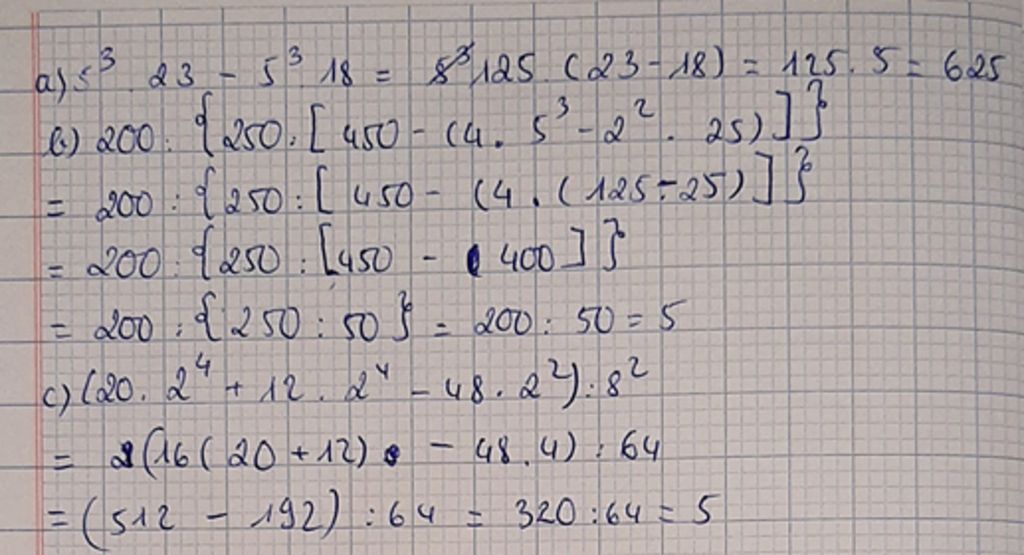 a) 5³ . 23 - 5³ 18 = 125 . (23-18) = 125 . 5 = 625
b) 200 : { 250 : [ 450 - (4 . 5³ - 2² . 25) ] }
= 200 : { 250 : [ 450 - (4 . (125 - 25) ] }
= 200 : { 250 : [ 450 - 400 ] }
= 200 : { 250 : 50 } = 200 : 50 = 5
c) (20 . 2⁴ + 12 . 2⁴ - 48 . 2²) : 8²
= (16 ( 20 + 12) - 48 . 4) : 64
= (512 - 192) : 64 = 320 : 64 = 5